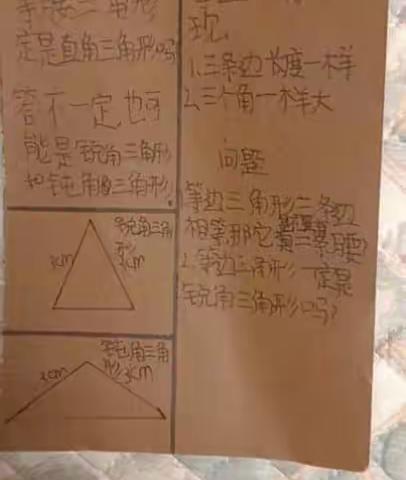 等腰三角形
定是直角三角形吗
答不一定也可
能是锐角三角形
和钝角三角形.
锐角三角
形
3cm
3cm
钝角三角
形
3cm
3cm
现
1.三条边长度一样
2.三个角一样大
问题
等边三角形三条边
相等那它有三条腰
2.等边三角形一定是
锐角三角形吗?